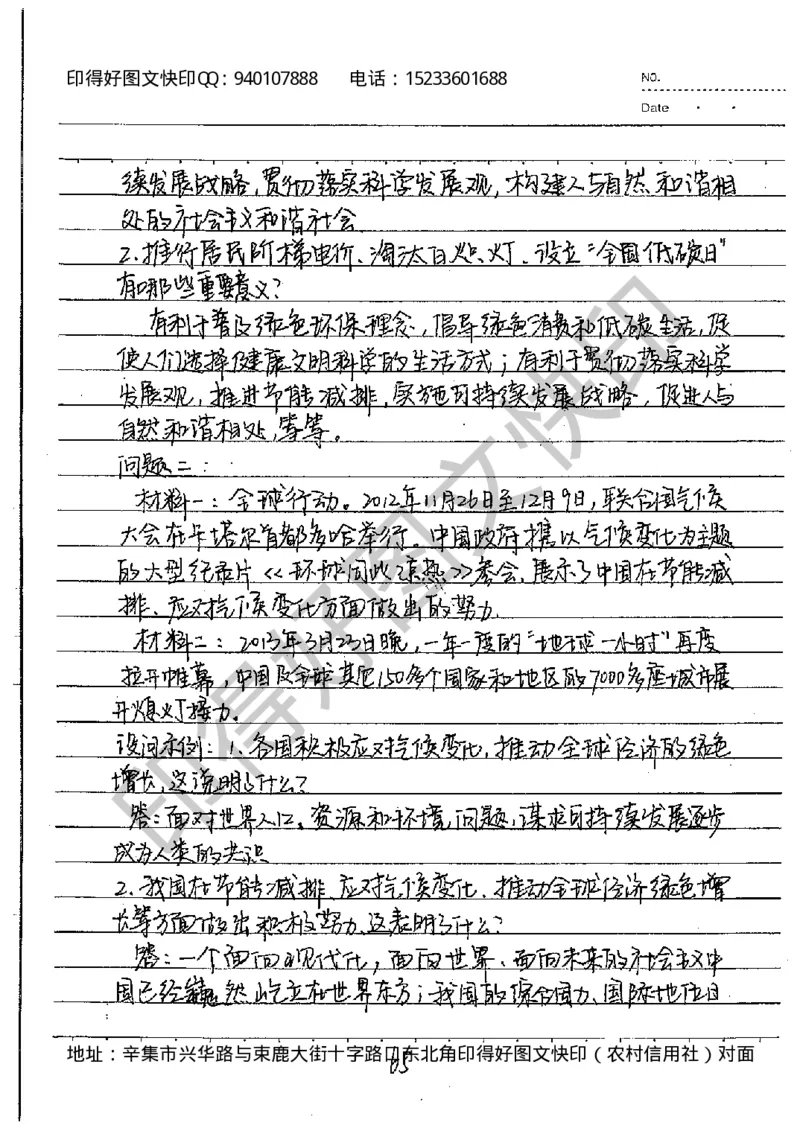 印得好图文快印QQ：940107888 电话：15233601688
NO.
Date
续发展战略,贯彻落实科学发展观,构建人与自然和谐相
处的社会主义和谐社会
2.推行居民阶梯电价、淘汰白炽灯、设立“全国低碳日”
有哪些重要意义?
有利于普及绿色环保理念,倡导绿色消费和低碳生活,促
使人们选择健康文明科学的生活方式;有利于贯彻落实科学
发展观,推进节能减排,实施可持续发展战略,促进人与
自然和谐相处,等等。
问题二:
材料一:全球行动。2012年11月26日至12月9日,联合国气候
大会在卡塔尔首都多哈举行。中国政府携以气候变化为主题
的大型纪录片《环球同此凉热》参会,展示了中国在节能减
排、应对气候变化方面做出的努力.
材料二:2013年3月23日晚,一年一度的“地球一小时”再度
拉开帷幕,中国及全球其它150多个国家和地区的7000多座城市展
开熄灯接力。
设问示例:1、各国积极应对气候变化,推动全球经济的绿色
增长,这说明了什么?
答:面对世界人口、资源和环境问题,谋求可持续发展逐步
成为人类的共识
2.我国在节能减排、应对气候变化、推动全球经济绿色增
长等方面做出积极努力.这表明了什么?
答:一个面向现代化,面向世界、面向未来的社会主义中
国已经巍然屹立在世界东方;我国的综合国力、国际地位日
地址：辛集市兴华路与束鹿大街十字路口东北角印得好图文快印（农村信用社）对面
05
印得好图文快印